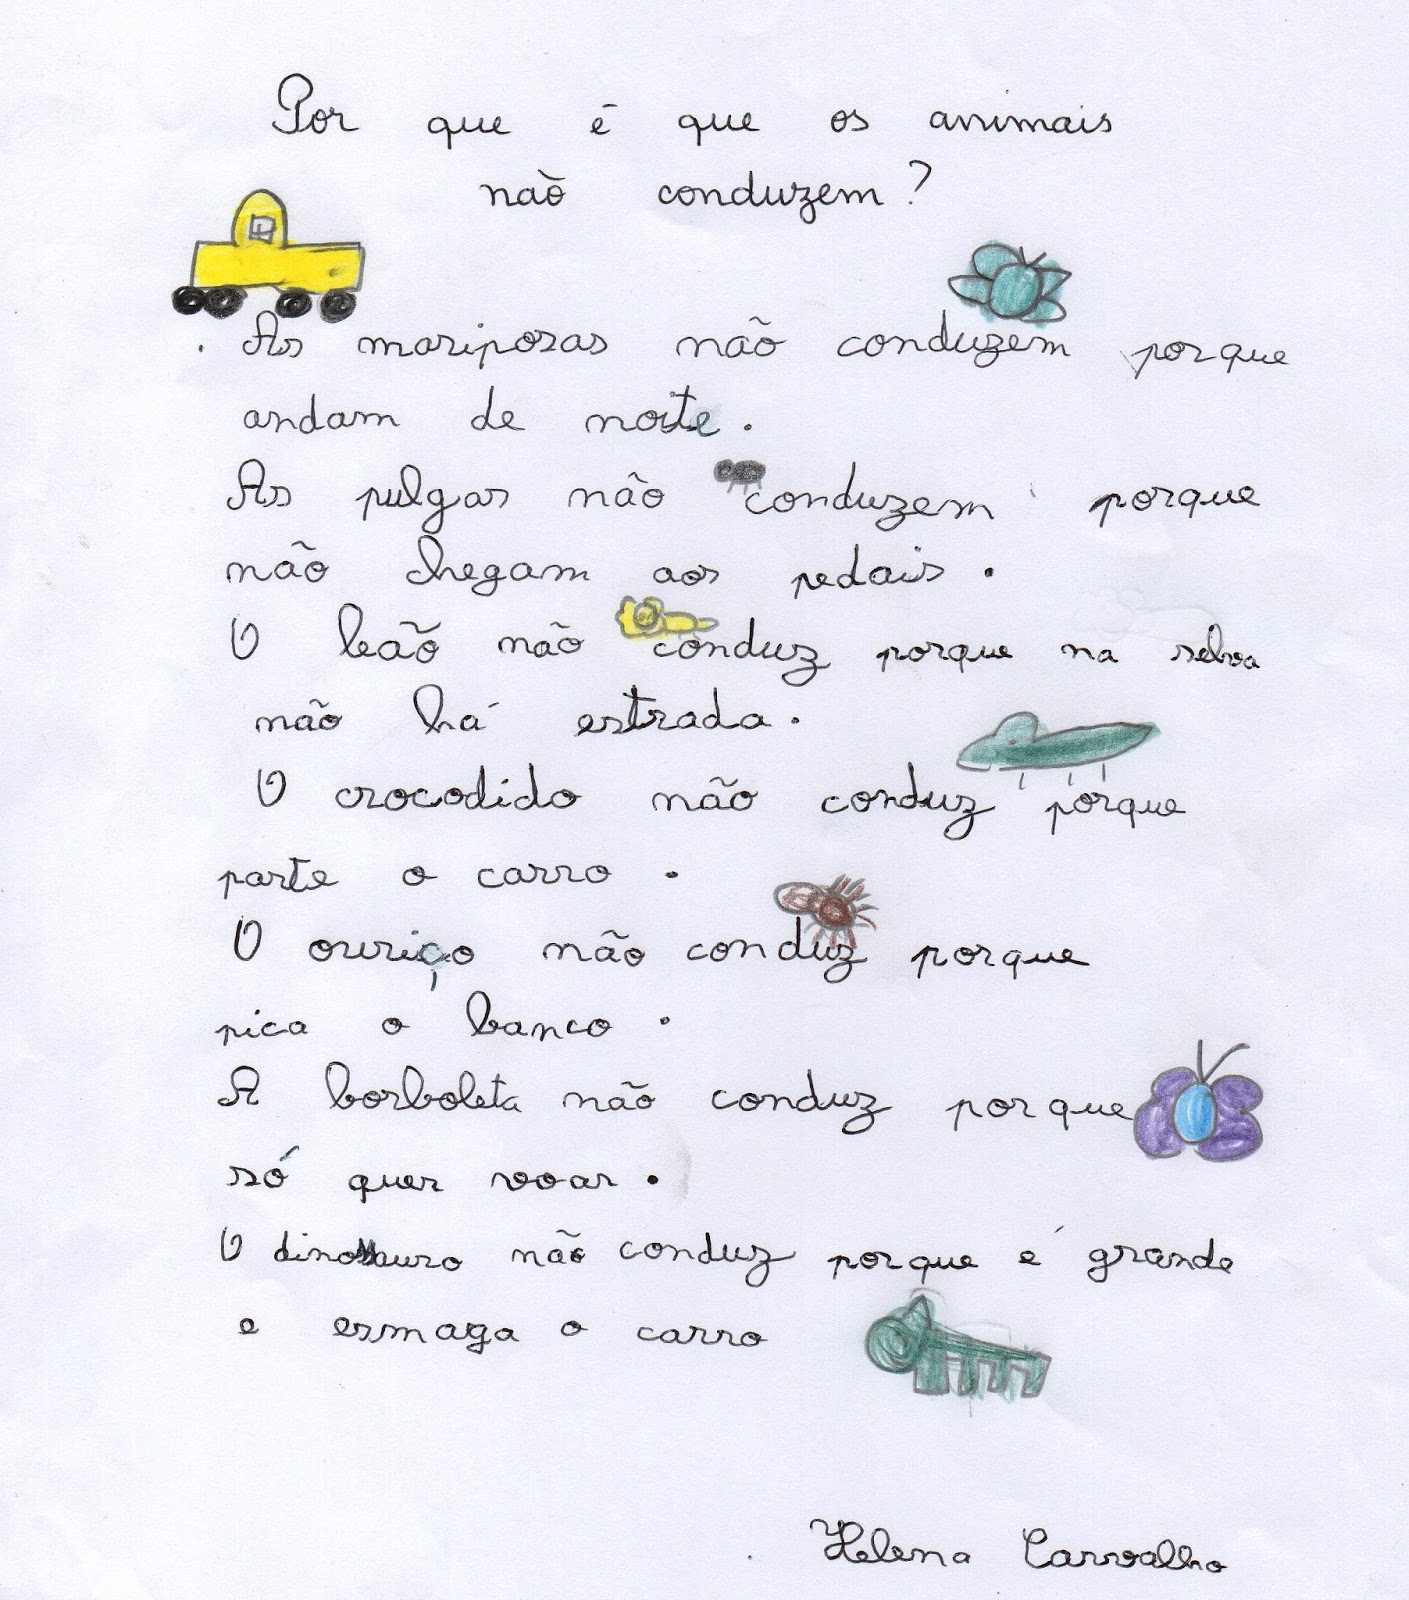 Por que é que os animais
não conduzem?
As mariposas não conduzem porque
andam de noite.
As pulgas não conduzem porque
não chegam aos pedais.
O leão não conduz porque na selva
não há estrada.
O crocodido não conduz porque
parte o carro.
O ouriço não conduz porque
pica o banco.
A borboleta não conduz porque
só quer voar.
O dinossauro não conduz porque é grande
e esmaga o carro
Helena Carvalho